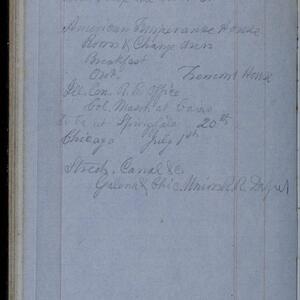 American Temperance House
Room & Change
Breakfast
Tremont House
Ill. Cen. R. R. Office
Col. Mason at Cairo
at Springfield 20th
Chicago July 1st
Street, Canal &c
Galena & Chic. Union R. R. Depot